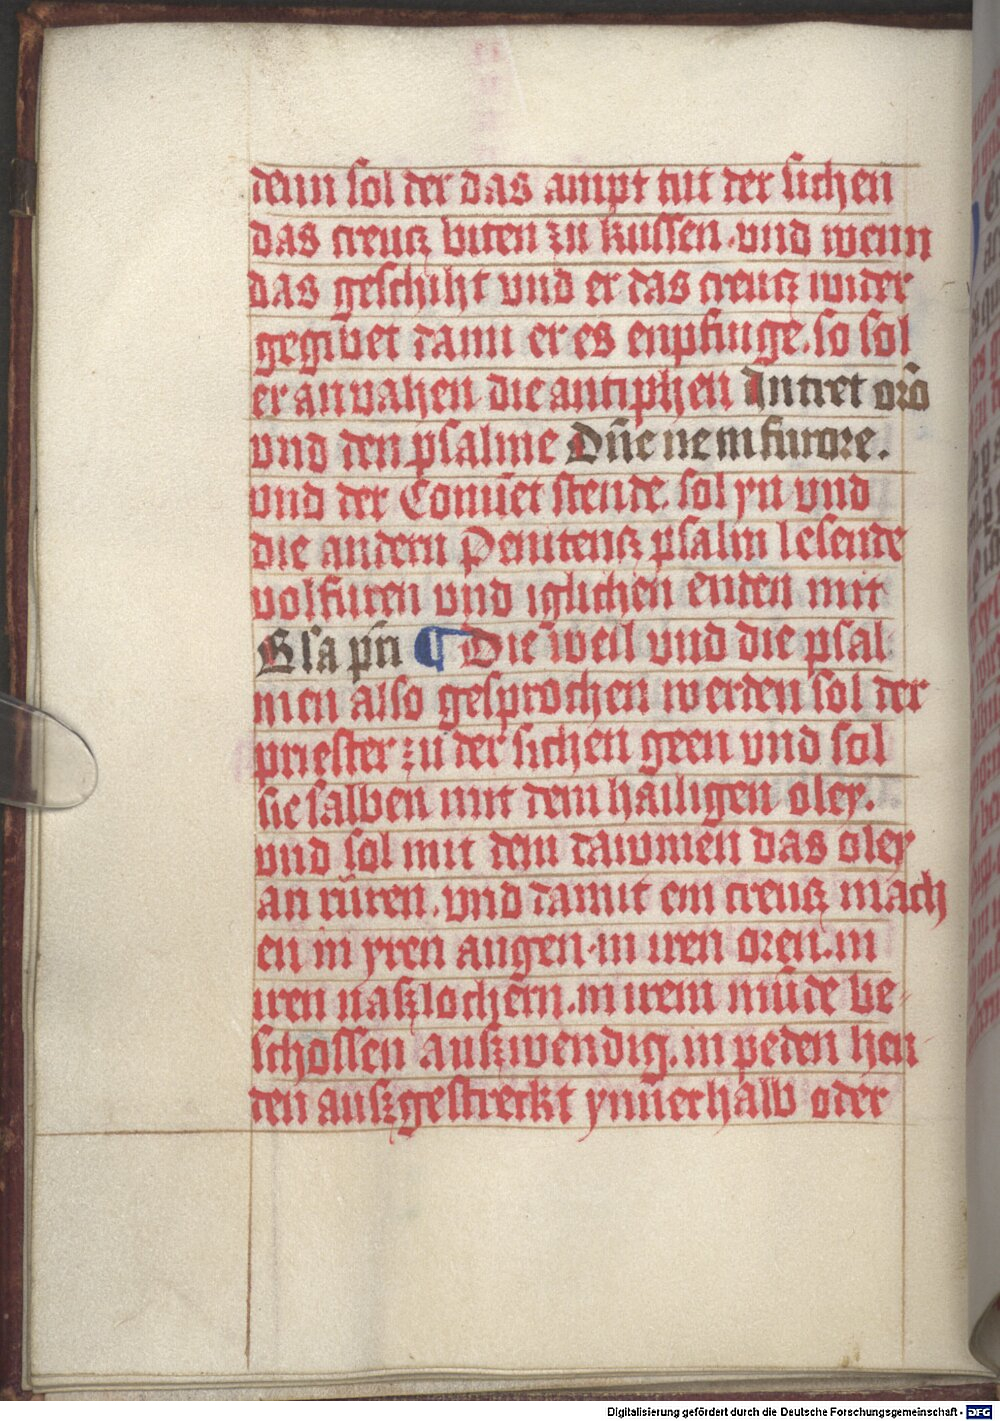 denn sol der das ampt tut der sichen
das creutz biten zu kussen. vnd wenn
das geschiht vnd er das creutz wider
gegibet dann er es enpfinge. so sol
er anvahen die antiphen Intret orō
vnd den psalme Dn̄e ne in furore.
vnd der Conuēt stende. sol yn vnd
die andern Penitentz psalm lesende
volfuren vnd iglichen enden mit
Gl̄a pr̄i ¶ Die weil vnd die psal
men also gesprochen werden sol der
priester zu der sichen geen vnd sol
sie salben mit dem hailigen oley.
vnd sol mit dem dawmen das oley
an rüren. vnd damit ein creutz mach
en in yren augen. in iren oren. in
iren naßlochern. in irem mūde be-
schossen außwendig. in peden hen
den außgestreckt ynnerhalb oder
Digitalisierung gefördert durch die Deutsche Forschungsgemeinschaft - DFG